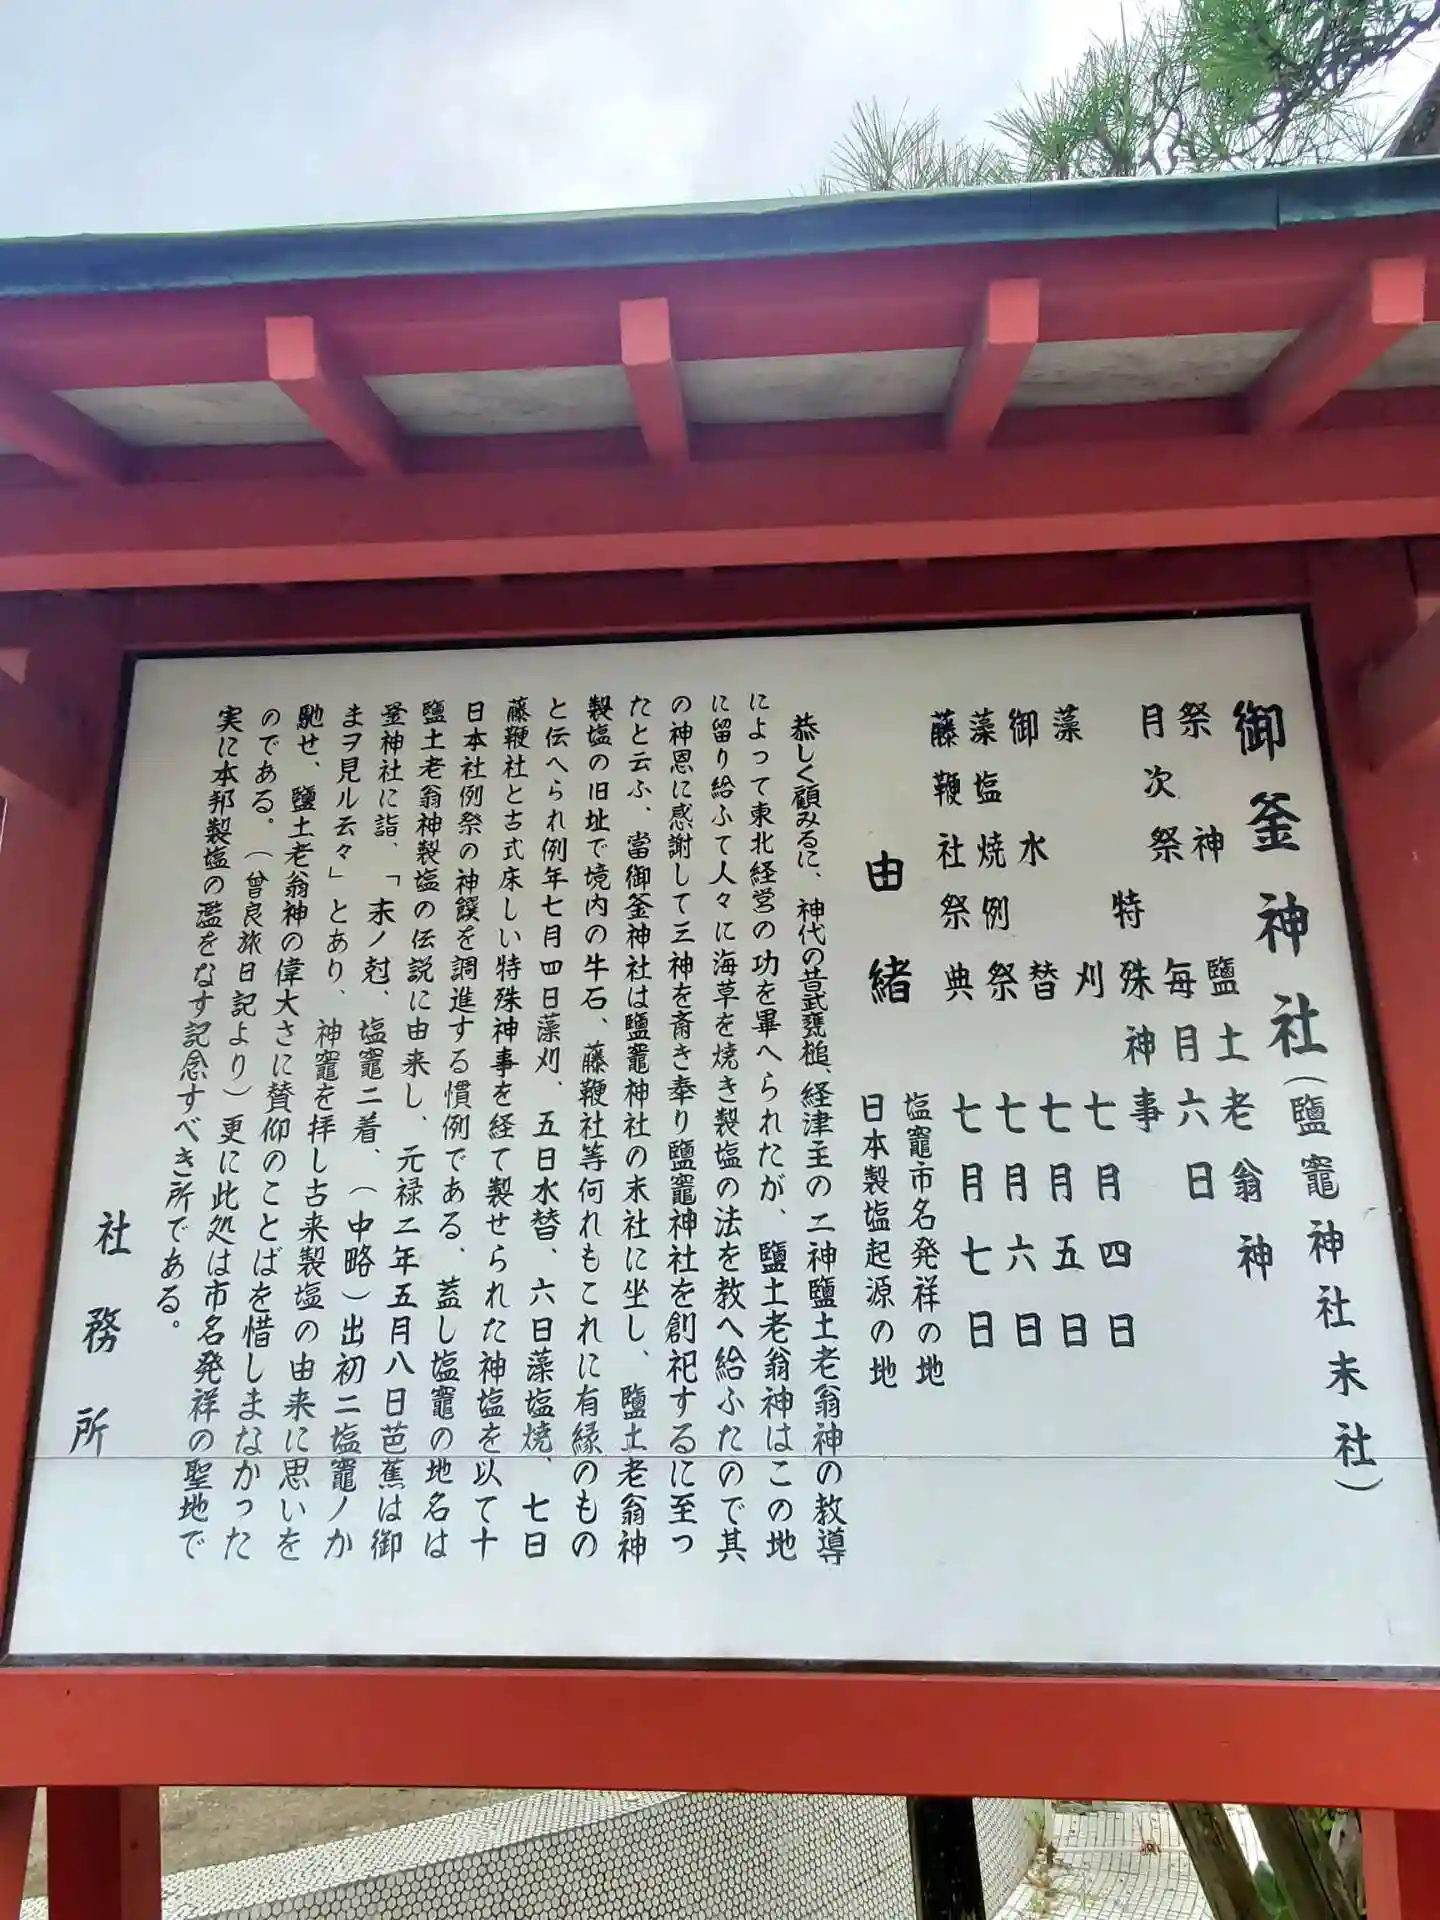 御釜神社(鹽竈神社末社)
祭神 鹽土老翁神
月次祭 毎月六日
特殊神事
藻刈 七月四日
御水替 七月五日
藻塩焼例祭 七月六日
藤鞭社祭典 七月七日
塩竈市名発祥の地
日本製塩起源の地
由緒
恭しく顧みるに、神代の昔武甕槌、経津主の二神鹽土老翁神の教導
によって東北経営の功を畢へられたが、鹽土老翁神はこの地
に留り給ふて人々に海草を焼き製塩の法を教へ給ふたので其
の神恩に感謝して三神を斎き奉り鹽竈神社を創祀するに至っ
たと云ふ、當御釜神社は鹽竈神社の末社に坐し、鹽土老翁神
製塩の旧址で境内の牛石、藤鞭社等何れもこれに有縁のもの
と伝へられ例年七月四日藻刈、五日水替、六日藻塩焼、七日
藤鞭社と古式床しい特殊神事を経て製せられた神塩を以て十
日本社例祭の神饌を調進する慣例である、蓋し塩竈の地名は
鹽土老翁神製塩の伝説に由来し、元禄二年五月八日芭蕉は御
釜神社に詣、「末ノ尅、塩竈二着、(中略)出初二塩竈ノか
まヲ見ル云々」とあり、神竈を拝し古来製塩の由来に思いを
馳せ、鹽土老翁神の偉大さに賛仰のことばを惜しまなかった
のである。(曾良旅日記より)更に此処は市名発祥の聖地で
実に本邦製塩の濫をなす記念すべき所である。
社務所